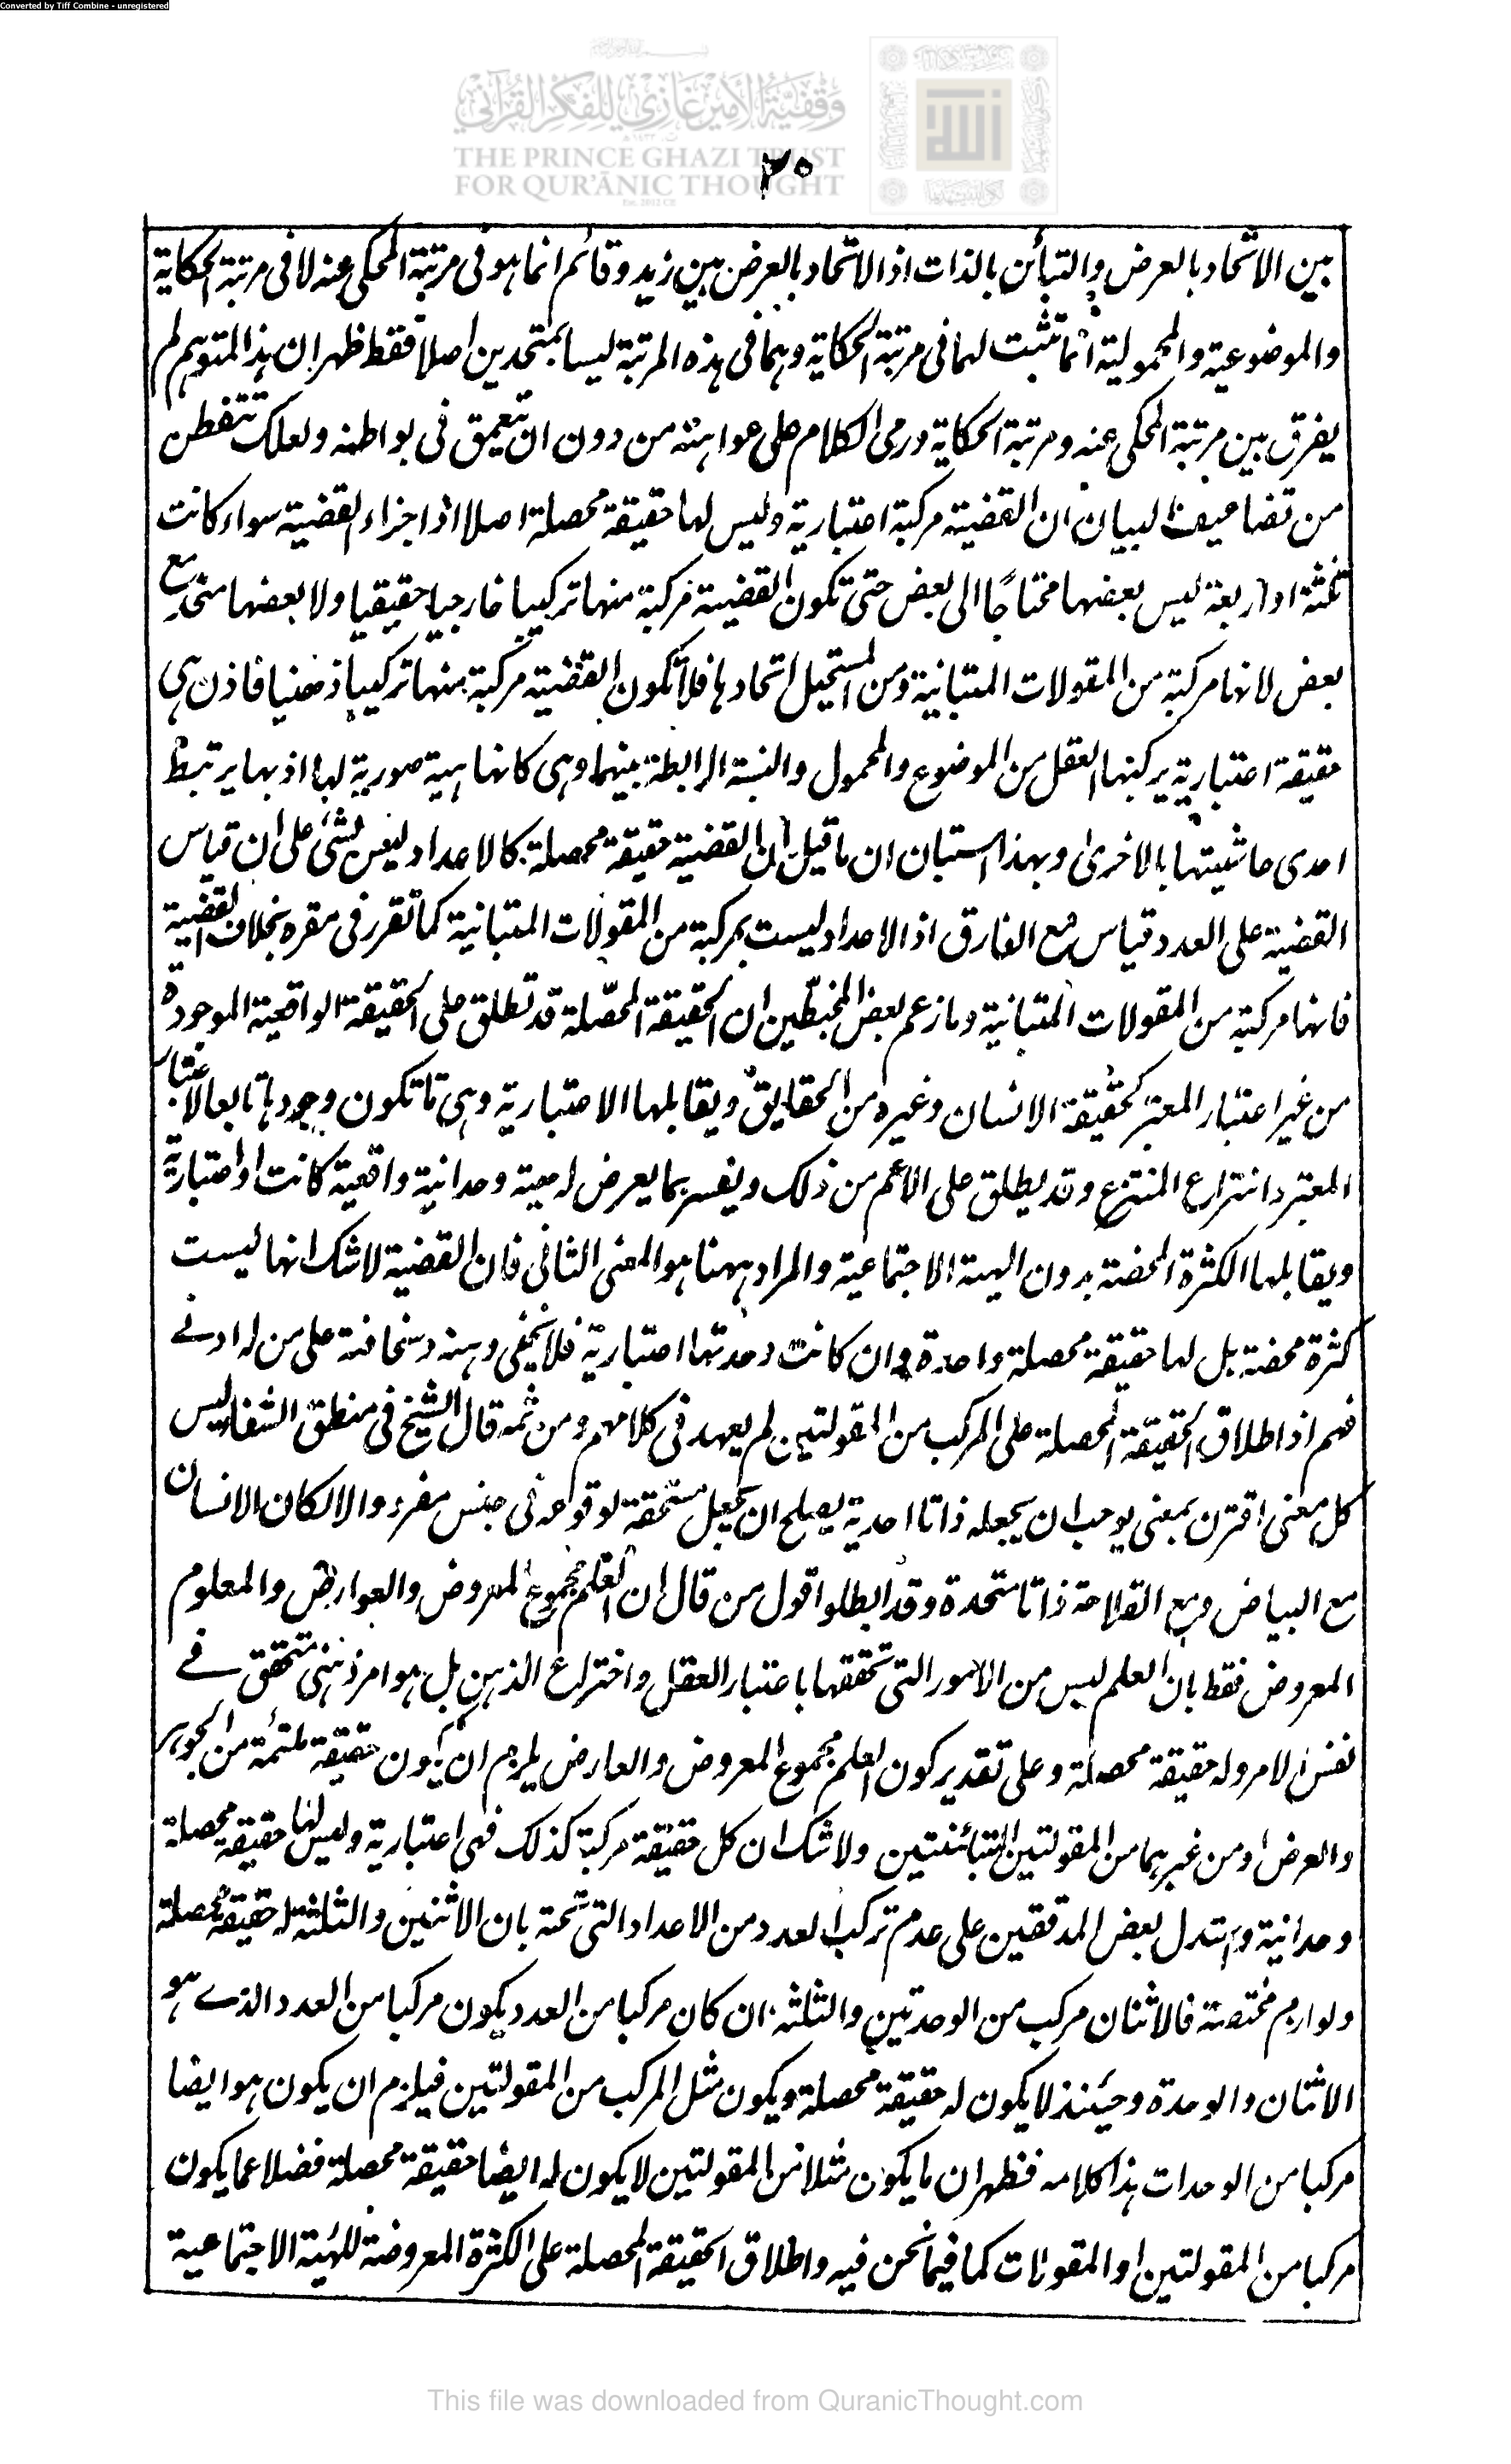 Converted by Tiff Combine - unregistered
وقفية الأمير غازي للفكر القرآني
THE PRINCE GHAZI TRUST
FOR QUR'ĀNIC THOUGHT
٣٠
بين الاتحاد بالعرض والتبائن بالذات اذ الاتحاد بالعرض بين زيد وقائم انما هو فى مرتبة المحكى عنه لا فى مرتبة الحكاية
والموضوعية والمحمولية انما تثبت لهما فى مرتبة الحكاية وهما فى هذه المرتبة ليسا بمتحدين اصلا فقط ظهر ان هذا المتوهم لم
يفرق بين مرتبة المحكى عنه ومرتبة الحكاية ورمى الكلام على عواهنه من دون ان يتعمق فى بواطنه ولعلك تتفطن
من تضاعيف البيان ان القضية مركبة اعتبارية وليس لها حقيقة محصلة اصلا اذ اجزاء القضية سواء كانت
ثلثة او اربعة ليس بعضها محتاجًا الى بعض حتى تكون القضية مركبة منها تركيبا خارجيا حقيقيا ولا بعضها متحد مع
بعض لانها مركبة من المقولات المتباينة ومن المستحيل اتحادها فلا تكون القضية مركبة منها تركيبا ذهنيا فاذن هى
حقيقة اعتبارية يركبها العقل من الموضوع والمحمول والنسبة الرابطة بينهما وهى كانها هيية صورية لها اذ بها يرتبط
احدى حاشيتها بالاخرى وبهذا استبان ان ما قيل ان القضية حقيقة محصلة كالاعداد ليس بشئ على ان قياس
القضية على العدد قياس مع الفارق اذ الاعداد ليست بمركبة من المقولات المتباينة كما تقرر فى مقره بخلاف القضية
فانها مركبة من المقولات المتباينة وما زعم بعض المخبطين ان الحقيقة المحصّلة قد تطلق على الحقيقة الواقعية الموجودة
من غير اعتبار المعتبر كحقيقة الانسان وغيره من الحقايق ويقابلها الاعتبارية وهى ما تكون وجودها تابعا لاعتبار
المعتبر وانتزاع المنتزع وقد يطلق على الاعم من ذلك ويفسر بما يعرض له معية وحدانية واقعية كانت او اعتبارية
ويقابلها الكثرة المحضة بدون الهيية الاجتماعية والمراد ههنا هو المعنى الثانى فان القضية لاشك انها ليست
كثرة محضة بل لها حقيقة محصلة واحدة وان كانت وحدتها اعتبارية فلا يخفى وهنه وسخافته على من له ادنے
فهم اذ اطلاق الحقيقة المحصلة على المركب من المقولتين لم يعهد فى كلامهم ومن ثمه قال الشيخ فى منطق الشفا ليس
كل معنى اقترن بمعنى يوجب ان يجعله ذاتا احدية يصلح ان يجعل مستحقة لوقوعه فى جنس مفرد والا لكان الانسان
مع البياض ومع الفلاحة ذاتا متحدة وقد ابطلوا قول من قال ان العلم مجموع المعروض والعوارض والمعلوم
المعروض فقط بان العلم ليس من الامور التى تحققها باعتبار العقل واختراع الذهن بل هو امر ذهنى متحقق فے
نفس الامر وله حقيقة محصلة وعلى تقدير كون العلم مجموع المعروض والعارض يلزم ان يكون حقيقة ملتئمة من الجوهر
والعرض او من غيرهما من المقولتين المتبائنتين ولا شك ان كل حقيقة مركبة كذلك فهى اعتبارية وليس لها حقيقة محصلة
وحدانية واستدل بعض المدققين على عدم تركب العدد من الاعداد التى تحته بان الاثنين والثلثة له حقيقة محصلة
ولوازم مختصة فالاثنان مركب من الوحدتين والثلثة ان كان مركبا من العدد يكون مركبا من العدد الذے هو
الاثنان والوحدة وحينئذ لا يكون له حقيقة محصلة ويكون مثل المركب من المقولتين فيلزم ان يكون هو ايضا
مركبا من الوحدات هذا كلامه فظهر ان ما يكون مثلا من المقولتين لا يكون له ايضا حقيقة محصلة فضلا عما يكون
مركبا من المقولتين او المقولات كما فيما نحن فيه واطلاق الحقيقة المحصلة على الكثرة المعروضة للهيئة الاجتماعية
This file was downloaded from QuranicThought.com